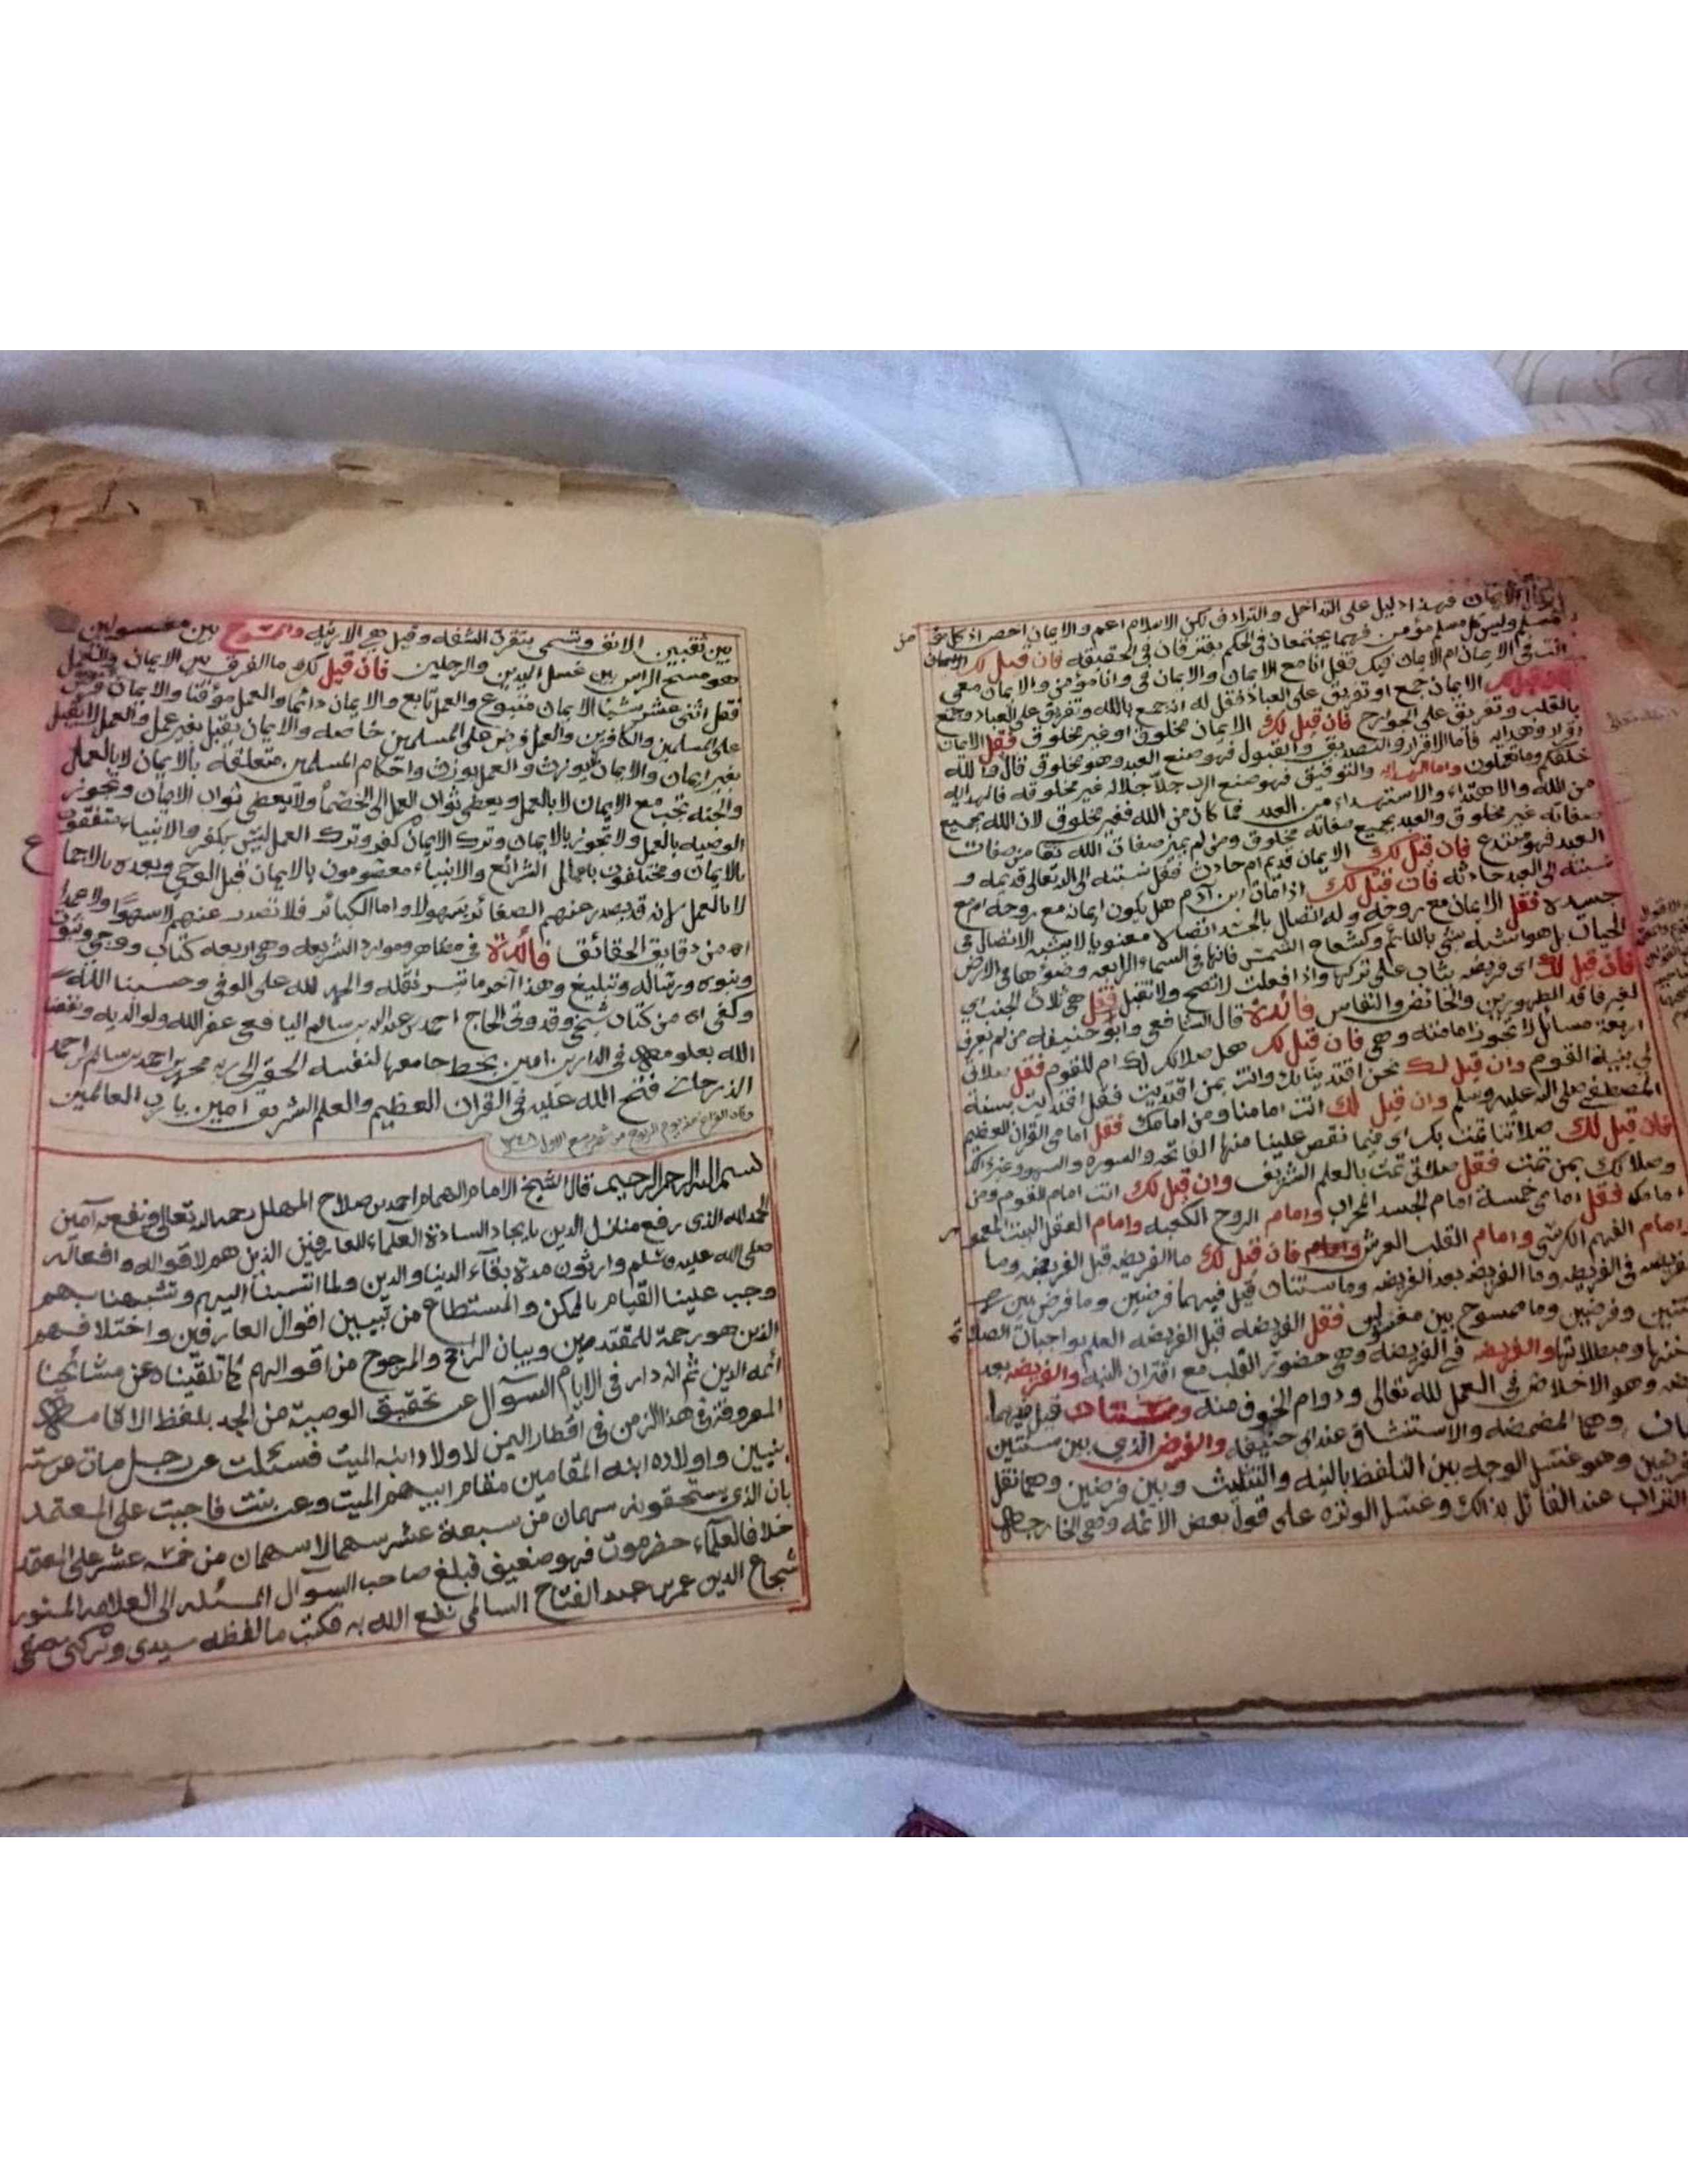 الايمان فهذا دليل على التداخل والترادف لكن الاسلام اعم والايمان اخص اذ كل
مسلم وليس كل مسلم مؤمن فهما يجتمعان في الحكم يفترقان في الحقيقه فان قيل لك الايمان
انت في الايمان ام الايمان فيك فقل انا مع الايمان والايمان في وانا مؤمن والايمان معي
الايمان جمع او تفريق على العباد فقل له ان جمع بالله وتفريق على العباد وجمع
بالقلب وتفريق على الجوارح فان قيل لك الايمان مخلوق او غير مخلوق فقل الايمان
اقرار وهدايه فاما الاقرار والتصديق والقبول فهو صنع العبد وهو مخلوق قال والله
خلقكم وما تعملون واما الهدايه والتوفيق فهو صنع الرب جل جلاله غير مخلوقه فالهدايه
من الله والاهتداء والاستهداء من العبد فما كان من الله فغير مخلوق لان الله بجميع
صفاته غير مخلوق والعبد بجميع صفاته مخلوق ومن لم يميز صفات الله تعا من صفات
العبد فهو مبتدع فان قيل لك الايمان قديم ام حادث فقل نسبته الى الله تعالى قديمه و
نسبته الى العبد حادثه فان قيل لك اذا مات ابن آدم هل يكون ايمان مع روحه ام مع
جسده فقل الايمان مع روحه وله اتصال بالجسد اتصالا معنويا لا يشبه الاتصال في
الحيات بل هو اشبه شي بالنائم وكشعاع الشمس فانها في السماء الرابعه وضوءها في الارض
فان قيل لك اي فريضه يثاب على تركها واذا فعلت لا تصح ولا تقبل فقل هي ثلاث الجنب اي
لغير فاقد الطهورين والحائض والنفاس فائدة قال الشافعي وابو حنيفه من لم يعرف
اربعة مسائل لا تجوز امامته وهي فان قيل لك هل صلاتك لك ام للقوم فقل صلاتي
لي بنية القوم وان قيل لك نحن اقتدينا بك وانت بمن اقتديت فقل اقتديت بسنة
المصطفى صلى الله عليه وسلم وان قيل لك انت امامنا ومن امامك فقل امامي القران العظيم
فان قيل لك صلاتنا تمت بك اي فيما نقص علينا منها الفاتحه والسوره والسهو وغير ذلك
وصلاتك بمن تمت فقل صلاتي تمت بالعلم الشريف وان قيل لك انت امام القوم ومن
امامك فقل امامي خمسة امام الجسد المحراب وامام الروح الكعبه وامام العقل البيت المعمور
وامام الفهم الكرسي وامام القلب العرش فان قيل لك ما الفريضه قبل الفريضه وما
الفريضه في الفريضه وما الفريضه بعد الفريضه وما سنتان قيل فيهما فرضين وما فرض بين
سنتين وفرضين وما ممسوح بين مغسولين فقل الفريضه قبل الفريضه العلم بواجبات الصلاة
سننها ومبطلاتها والفريضه في الفريضه وهي حضور القلب مع اقتران النيه والفريضه بعد
وهو الاخلاص في العمل لله تعالى ودوام الخوف منه وسنتان قيل فيهما
وهما المضمضه والاستنشاق عند ابي حنيفه والفرض الذي بين سنتين
فرضين وهو غسل الوجه بين التلفظ بالنيه والتثليث وبين فرضين وهما نقل
التراب عند القائل بذالك وغسل الوتره على قول بعض الائمه وهي الخارجه
بين ثقبين الانف وتسمى بتقرة الشفه وقيل هي الارنبه والممسوح بين مغسولين
هو مسح الراس بين غسل اليدين والرجلين فان قيل لك ما الفرق بين الايمان والعمل
فقل اثنى عشر شيئا الايمان متبوع والعمل تابع والايمان دائما والعمل مؤقتا والايمان فرض
على المسلمين والكافرين والعمل فرض على المسلمين خاصه والايمان يقبل بغير عمل والعمل لا يقبل
بغير ايمان والايمان لا يوزن والعمل يوزن واحكام المسلمين متعلقة بالايمان لا بالعمل
والجنه تجب مع الايمان لا بالعمل ويعطى ثواب العمل الى الخصماء ولا يعطى ثواب الايمان وتجوز
الوصيه بالعمل ولا تجوز بالايمان وترك الايمان كفر وترك العمل ليس بكفر والانبياء متفقون
بالايمان ومختلفون باعمال الشرائع والانبياء معصومون بالايمان قبل الوحي وبعده بالاجماع
لا بالعمل فانه قد يصدر عنهم الصغائر سهوا لا واما الكبائر فلا تصدر عنهم لا سهوا ولا عمدا
اه من دقايق الحقائق فائدة في مظاهر وموارد الشريعه وهي اربعه كتاب ووحي
ونبوه ورساله وتبليغ وهذا آخر ما تيسر نقله والحمد لله على الوفى وحسبنا الله
وكفى اه من كتاب شيخي وقدوتي الحاج احمد بن عبد الله بن سالم اليافعي عفر الله ولوالديه ونفعنا
الله بعلومه في الدارين امين بخط جامعها لنفسه الحقير الى ربه محمد بن احمد بن سالم بن احمد
فتح الله عليه في القران العظيم والعلم الشريف امين يا رب العالمين
وكان الفراغ منه يوم الربوع من شهر ربيع الاول ١٣٤٨
بسم الله الرحمن الرحيم قال الشيخ الامام الهمام احمد بن صلاح المهلل رحمه الله تعالى ونفع به آمين
الحمد لله الذي رفع منازل الدين بايجاد السادة العلماء للعارفين الذين هم لاقواله وافعاله
صلى الله عليه وسلم وارثون مدة بقاء الدنيا والدين ولما انتسبنا اليهم وتشبهنا بهم
وجب علينا القيام بالممكن والمستطاع من تبيين اقوال العارفين واختلافهم
الذين هو رحمة للمقتدين وبيان الراجح والمرجوح من اقوالهم كما تلقيناه عن مشائخنا
أئمه الدين ثم انه دار في الايام السؤال عن تحقيق الوصية من الجد بلفظ الاقامه
المعروفة في هذا الزمن في اقطار اليمن لاولاد ابنه الميت فسئلت عن رجل مات عن ستة
بنيين واولاده ابنه المقامين مقام ابيهم الميت وعن بنت فاجبت على المعتمد
بان الذي يستحقونه سهمان من سبعة عشر سهما لا سهمان من خمسه عشر على المعتمد
خلافا لعلماء حضرموت فهو ضعيف فبلغ صاحب السؤال المسئله الى العلامه المنور
شجاع الدين عمر بن عبد الفتاح السالمي نفع الله به فكتب ما لفظه سيدي